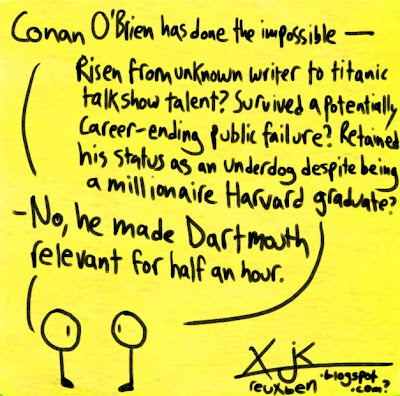 Conan O'Brien has done the impossible —
Risen from unknown writer to titanic
talkshow talent? Survived a potentially
career-ending public failure? Retained
his status as an underdog despite being
a millionaire Harvard graduate?
-No, he made Dartmouth
relevant for half an hour.
XJK
reuxben .blogspot
.com?